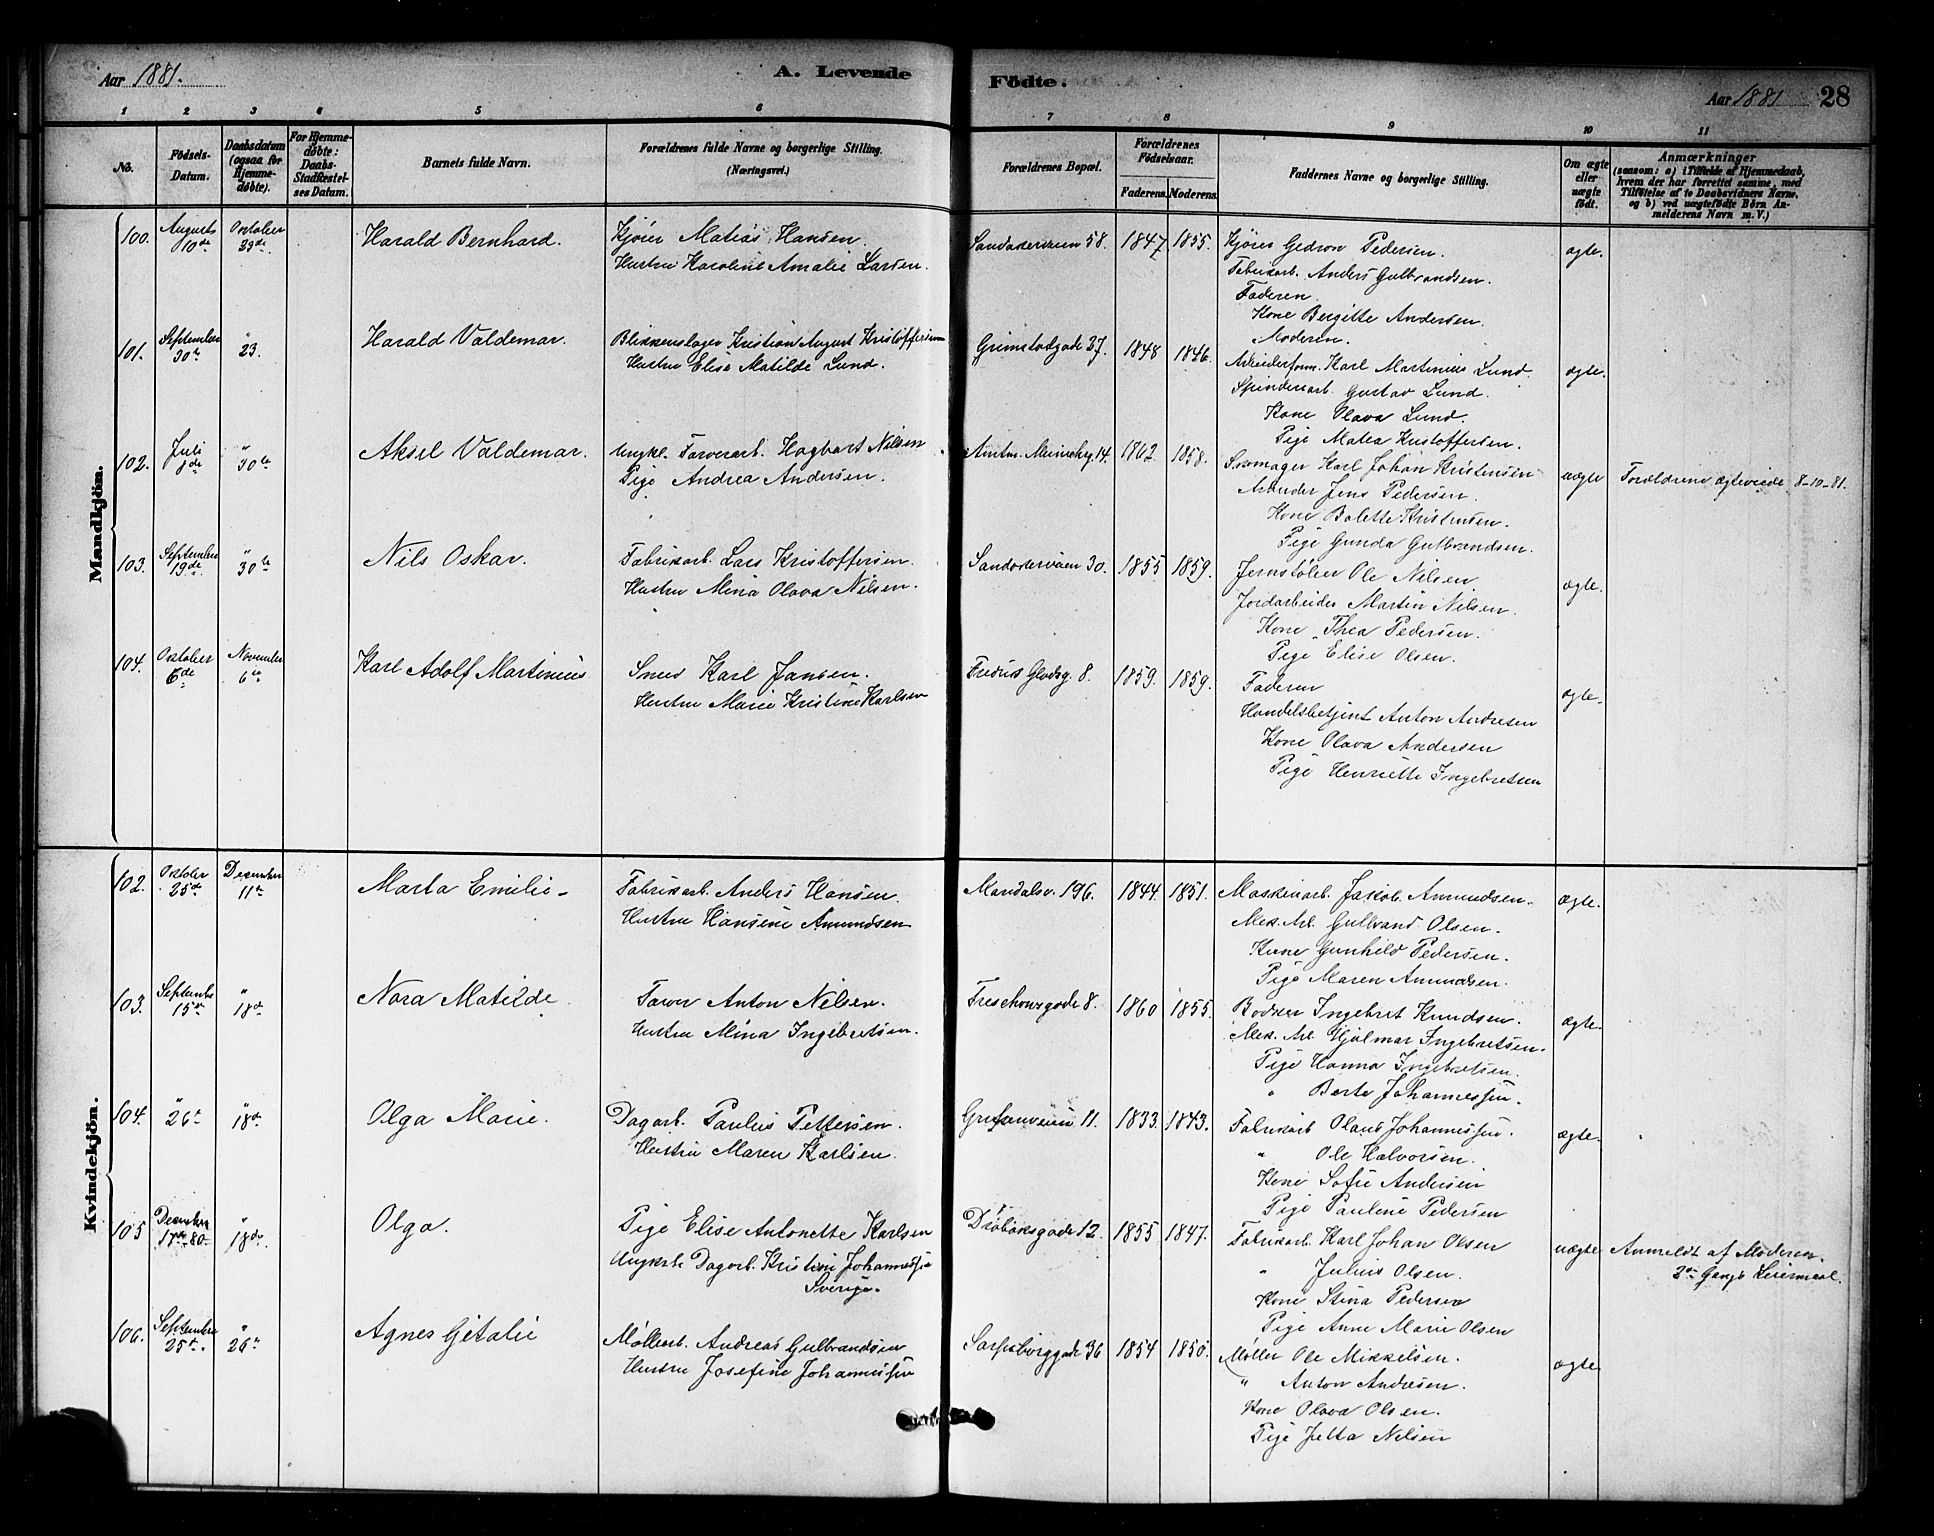 Aar 1881.
A. Levende
Födte.
Aar 1881
28
1 2 3 4 5 6 7 8 9 10 11
No.
Födsels-Datum.
Daabsdatum (ogsaa for Hjemme-døbte).
For Hjemme-døbte: Daabs-Stadfæstel-ses Datum.
Barnets fulde Navn.
Forældrenes fulde Navne og borgerlige Stilling.
(Næringsvei.)
Forældrenes Bopæl.
Forældrenes Fødselsaar.
Faderens. Moderens.
Faddernes Navne og borgerlige Stilling.
Om ægte eller uægte født.
Anmærkninger
(saasom: a) i Tilfælde af Hjemmedaab,
hvem der har forrettet samme, med
Tilføielse af to Daabsvidners Navne,
og b) ved uægtefødte Börn An-
melderens Navn m. V.)
Mandkjön.
100. Augusts 10de Oktober 23de Harald Bernhard. Kjører Matias Hansen. Sandakerveien 58. 1847 1855. Kjører Gedron Pedersen. ægte.
Hustru Karoline Amalie Larsen. Fabrikarb. Anders Gulbrandsen.
Faderen.
Kone Bergitte Andersen.
Moderen.
101. September 30te " 23. Harald Valdemar. Blikkenslager Kristian August Kristoffersen Grimstadgade 27. 1848 1846. Arbeiderform. Karl Martinius Lund. ægte.
Hustru Elise Matilde Lund. Spinderiarb. Gustav Lund.
Kone Olava Lund.
Pige Matea Kristoffersen.
102. Juli 1de " 30te Aksel Valdemar. Ungkl. Farverarb. Hagbart Nilsen Amtm. Meinichsg 14. 1862. 1858. Skomager Karl Johan Kristensen uægte Forældrene ægteviede 8-10-81.
Pige Andrea Andersen. Arbeider Jens Pedersen.
Kone Bolette Kristensen.
Pige Gunda Gulbrandsen.
103. September 19de " 30te Nils Oskar. Fabrikarb. Lars Kristoffersen Sandakerveien 30. 1855 1859. Jernstøber Ole Nilsen ægte.
Hustru Mina Olava Nilsen. Jordarbeider Martin Nilsen.
Kone Thea Pedersen.
Pige Elise Olsen.
104. Oktober 6de November 6te Karl Adolf Martinius Smed Karl Jansen. Fredrik Gladsg. 8. 1859. 1859. Faderen ægte.
Hustru Marie Kristine Karlsen Handelsbetjent Anton Andresen
Kone Olava Andersen
Pige Henriette Ingebretsen
Kvindekjön.
102. Oktober 25de December 11te Marta Emilie Fabrikarb. Anders Hansen. Maridalsv. 196. 1844. 1851. Maskinarb. Jakob Amundsen. ægte.
Hustru Hansine Amundsen Mek. Arb. Gulbrand Olsen.
Kone Gunhild Pedersen.
Pige Maren Amundsen.
103. September 15de " 18de Nora Matilde. Farver Anton Nilsen. Treschowsgade 8. 1860 1855. Bødker Ingebret Knudsen. ægte.
Hustru Mina Ingebretsen. Mek. Arb. Hjalmar Ingebretsen.
Pige Hanna Ingebretsen.
" Berte Johannessen.
104. " 26te " 18de Olga Marie. Dagarb. Paulus Pettersen. Grefsenveien 11. 1833. 1843. Fabrikarb Olaus Johannessen. ægte.
Hustru Maren Karlsen. " Ole Halvorsen.
Kone Sofie Andersen
Pige Pauline Pedersen
105 December 17de 80 " 18de Olga. Pige Elise Antonette Karlsen Drøbaksgade 12. 1855 1847. Fabrikarb. Karl Johan Olsen uægte Anmeldt af Moderen.
Ungkarl Dagarb. Kristine Johannessen " Julius Olsen. 2den Gangs Leiermaal.
Sverige. Kone Stina Pedersen
Pige Anne Marie Olsen
106. September 25de " 26te Agnes Getalie Møllearb. Andreas Gulbrandsen Sarpsborggade 36 1854 1850. Møller Ole Mikkelsen. ægte
Hustru Josefine Johannessen " Anton Andresen.
Kone Olava Olsen.
Pige Jetta Nilsen